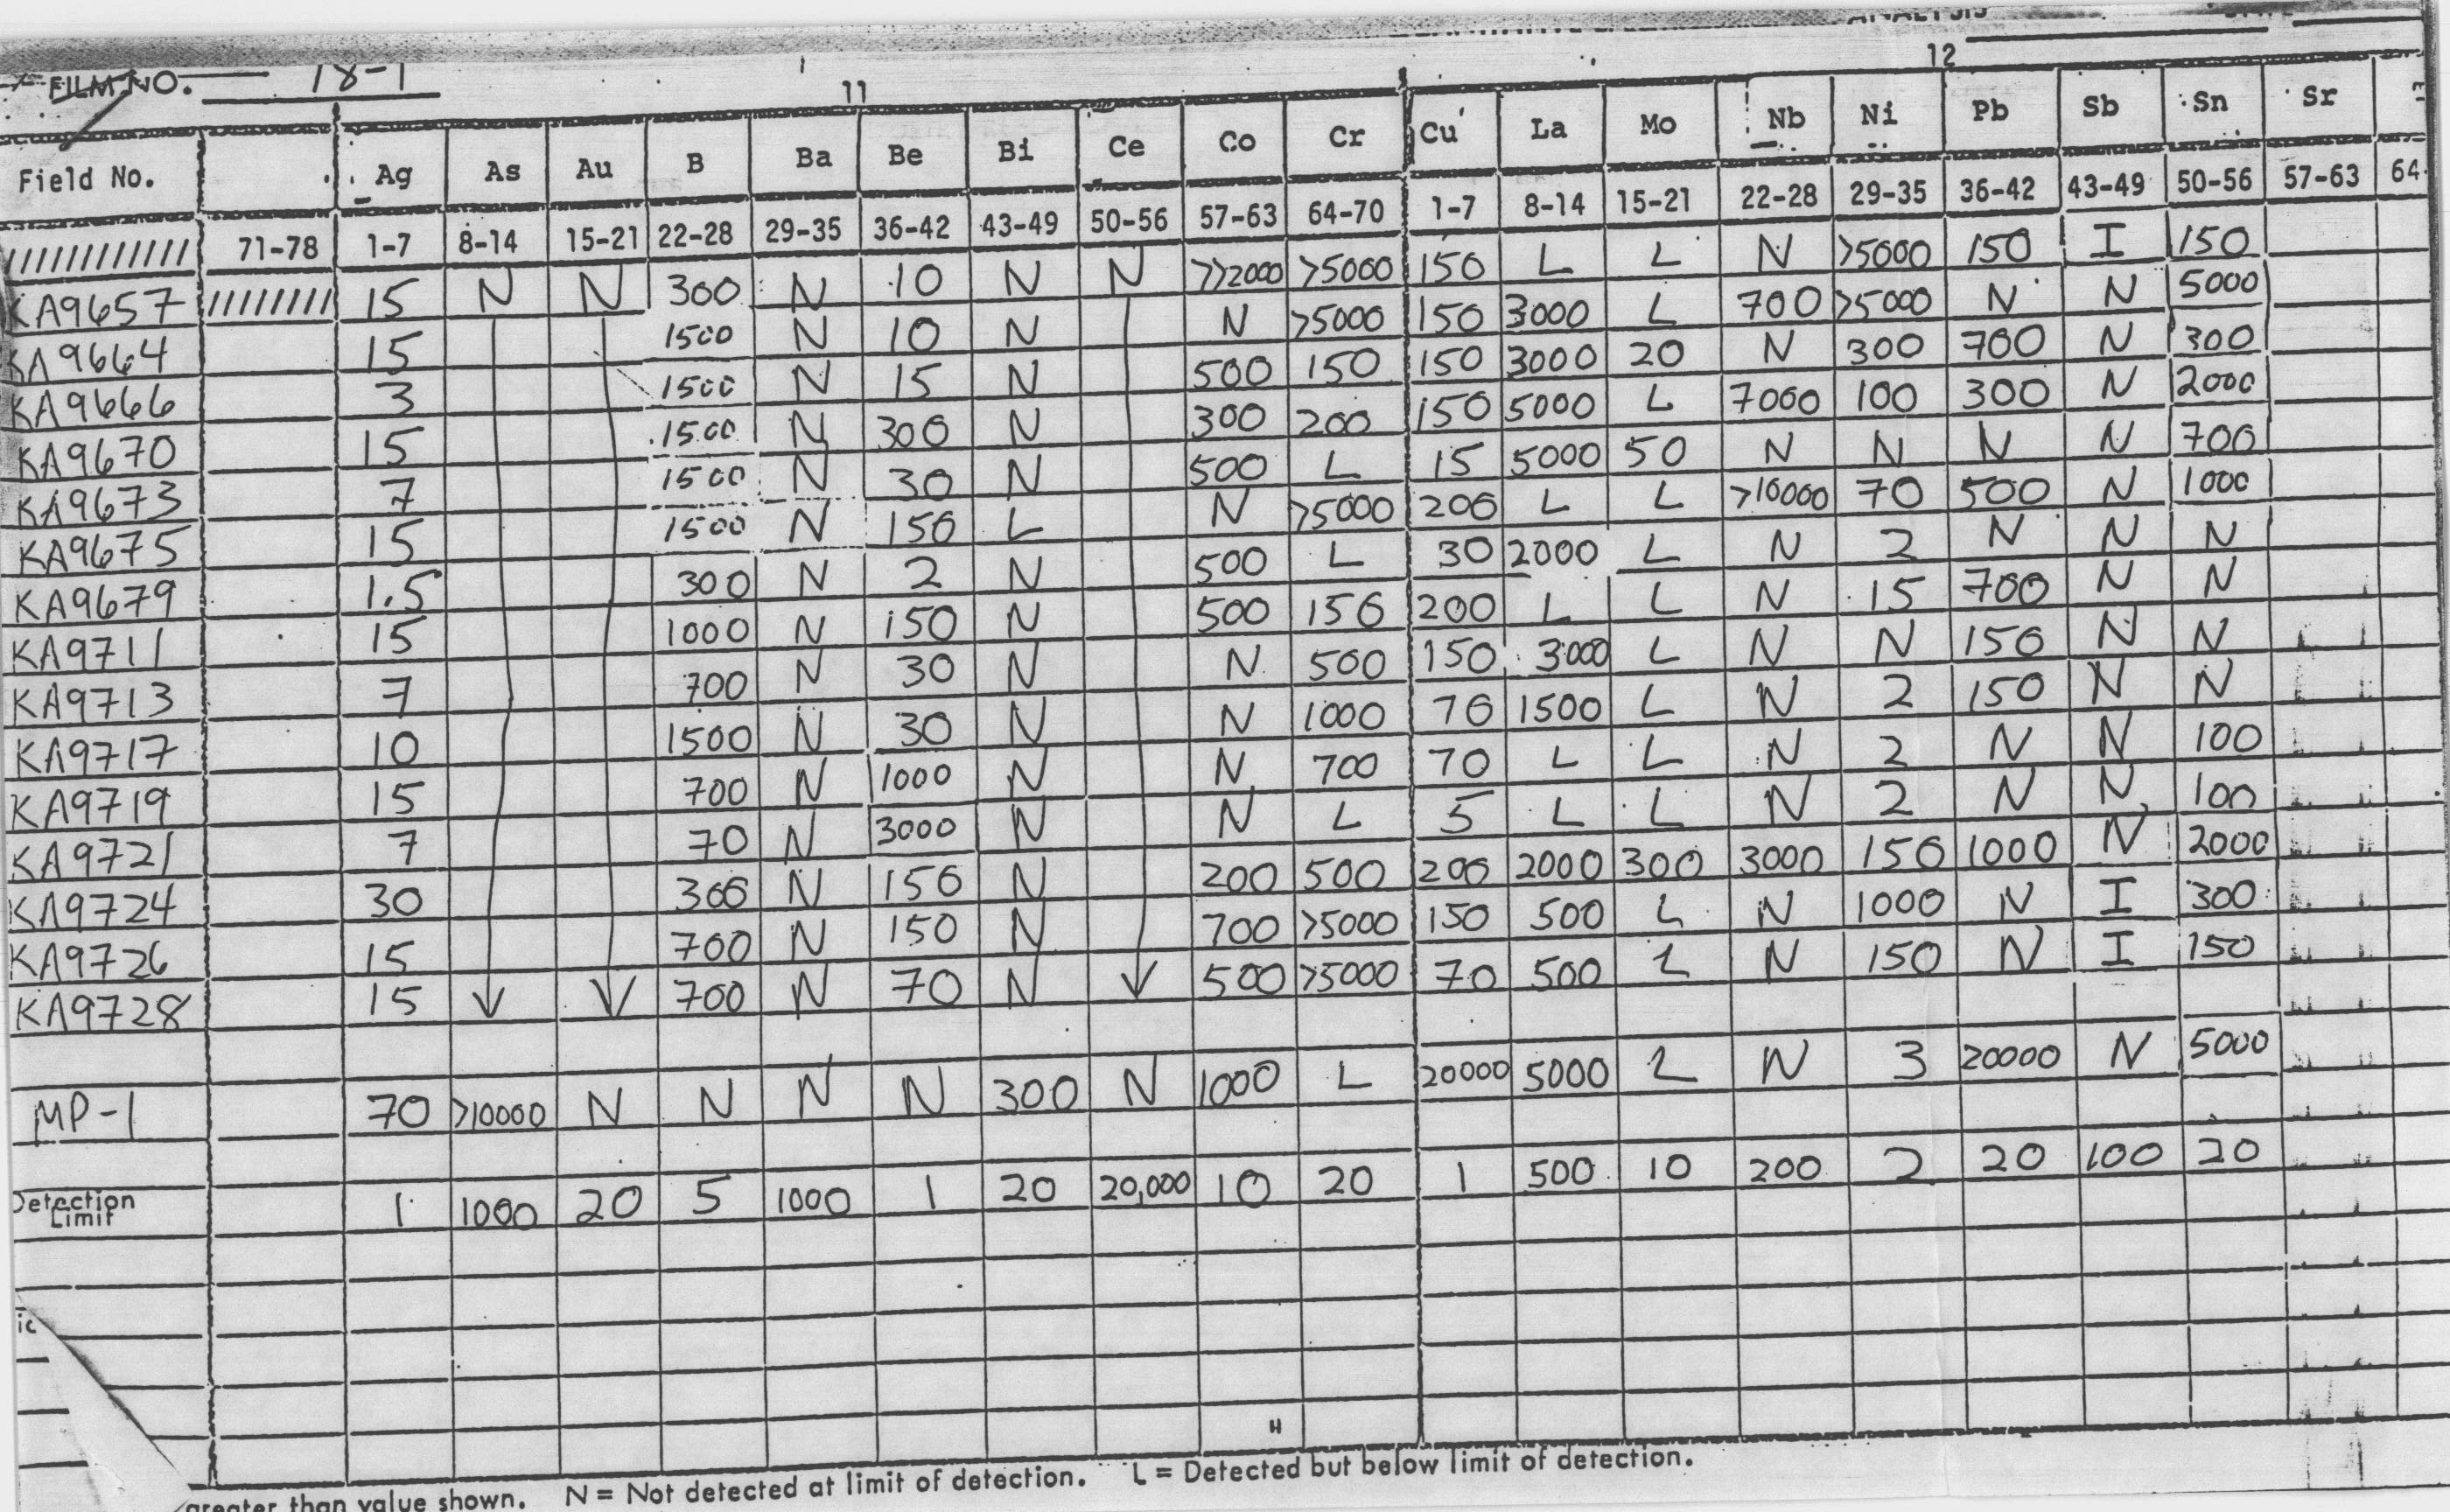 FILM NO. 18-1
11 12
Field No. Ag As Au B Ba Be Bi Ce Co Cr Cu La Mo Nb Ni Pb Sb Sn Sr
//////////// 71-78 1-7 8-14 15-21 22-28 29-35 36-42 43-49 50-56 57-63 64-70 1-7 8-14 15-21 22-28 29-35 36-42 43-49 50-56 57-63 64-
KA9657 ///////// 15 N N 300 N 10 N N >>2000 >5000 150 L L N >5000 150 I 150
KA9664 15 1500 N 10 N N >5000 150 3000 L 700 >5000 N N 5000
KA9666 3 1500 N 15 N 500 150 150 3000 20 N 300 700 N 300
KA9670 15 1500 N 300 N 300 200 150 5000 L 7000 100 300 N 2000
KA9673 7 1500 N 30 N 500 L 15 5000 50 N N N N 700
KA9675 15 1500 N 150 L N >5000 200 L L >10000 70 500 N 1000
KA9679 1.5 300 N 2 N 500 L 30 2000 L N 2 N N N
KA9711 15 1000 N 150 N 500 150 200 L L N 15 700 N N
KA9713 7 700 N 30 N N 500 150 3000 L N N 150 N N
KA9717 10 1500 N 30 N N 1000 70 1500 L N 2 150 N N
KA9719 15 700 N 1000 N N 700 70 L L N 2 N N 100
KA9721 7 70 N 3000 N N L 5 L L N 2 N N 100
KA9724 30 300 N 150 N 200 500 200 2000 300 3000 150 1000 N 2000
KA9726 15 700 N 150 N 700 >5000 150 500 L N 1000 N I 300
KA9728 15 700 N 70 N 500 >5000 70 500 L N 150 N I 150
MP-1 70 >10000 N N N N 300 N 1000 L 20000 5000 L N 3 20000 N 5000
Detection Limit 1 1000 20 5 1000 1 20 20,000 10 20 1 500 10 200 2 20 100 20
H
greater than value shown. N = Not detected at limit of detection. L = Detected but below limit of detection.